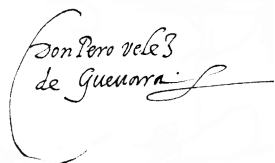 Don Pero velez
de Gueuara.